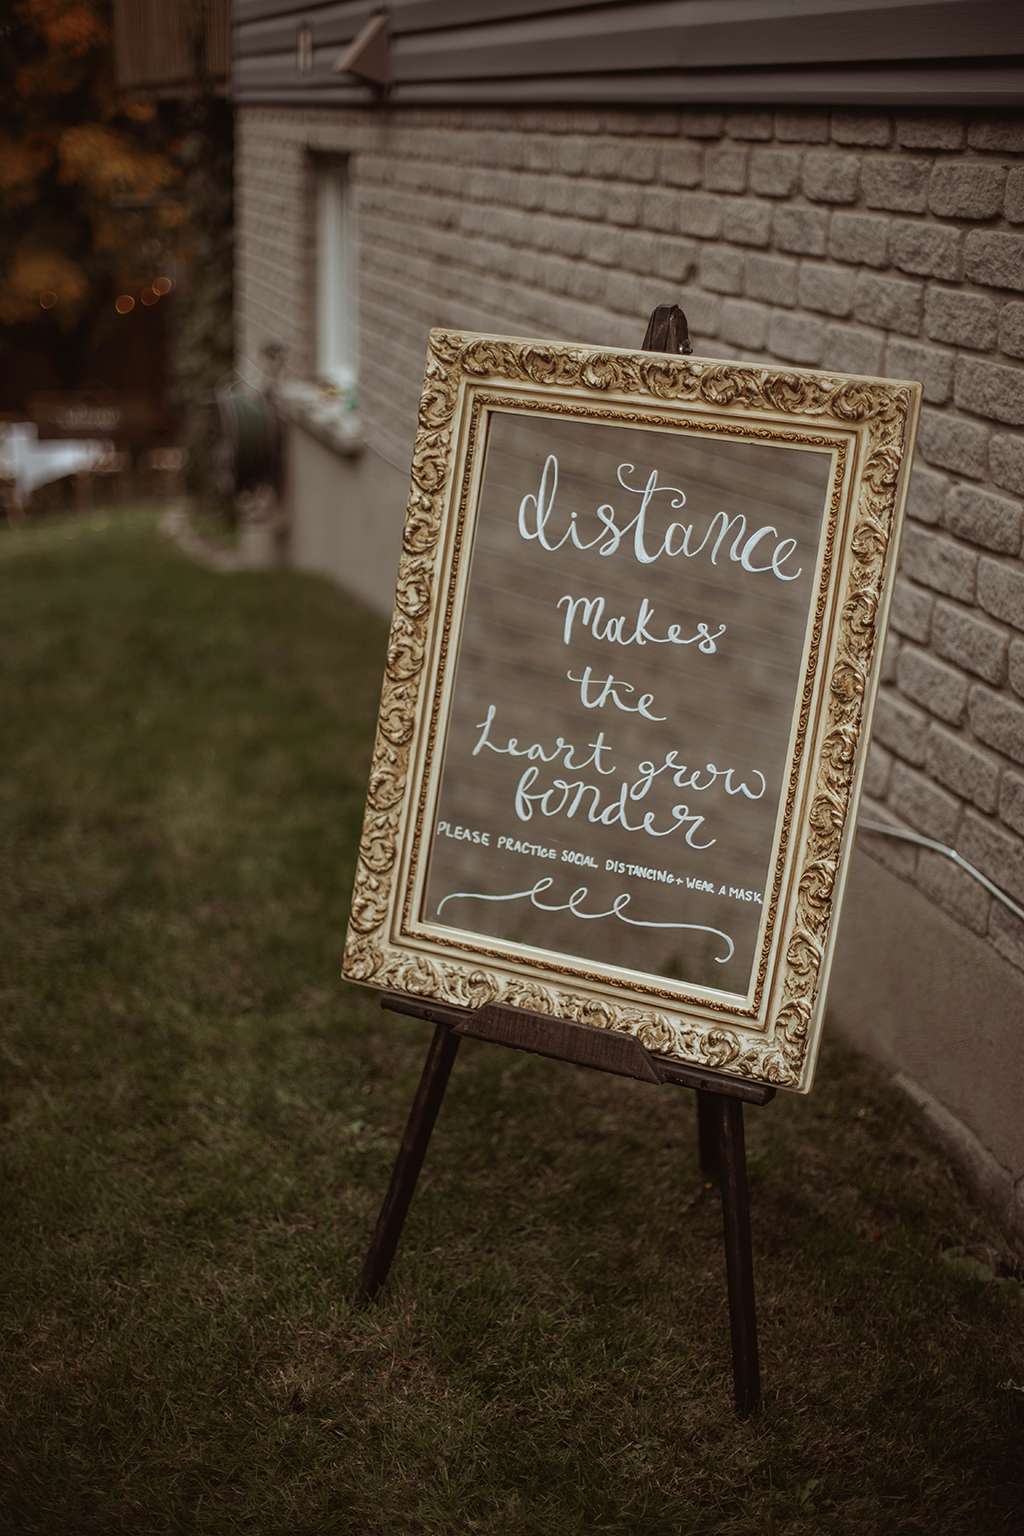 distance
makes
the
heart grow
fonder
PLEASE PRACTICE SOCIAL DISTANCING + WEAR A MASK